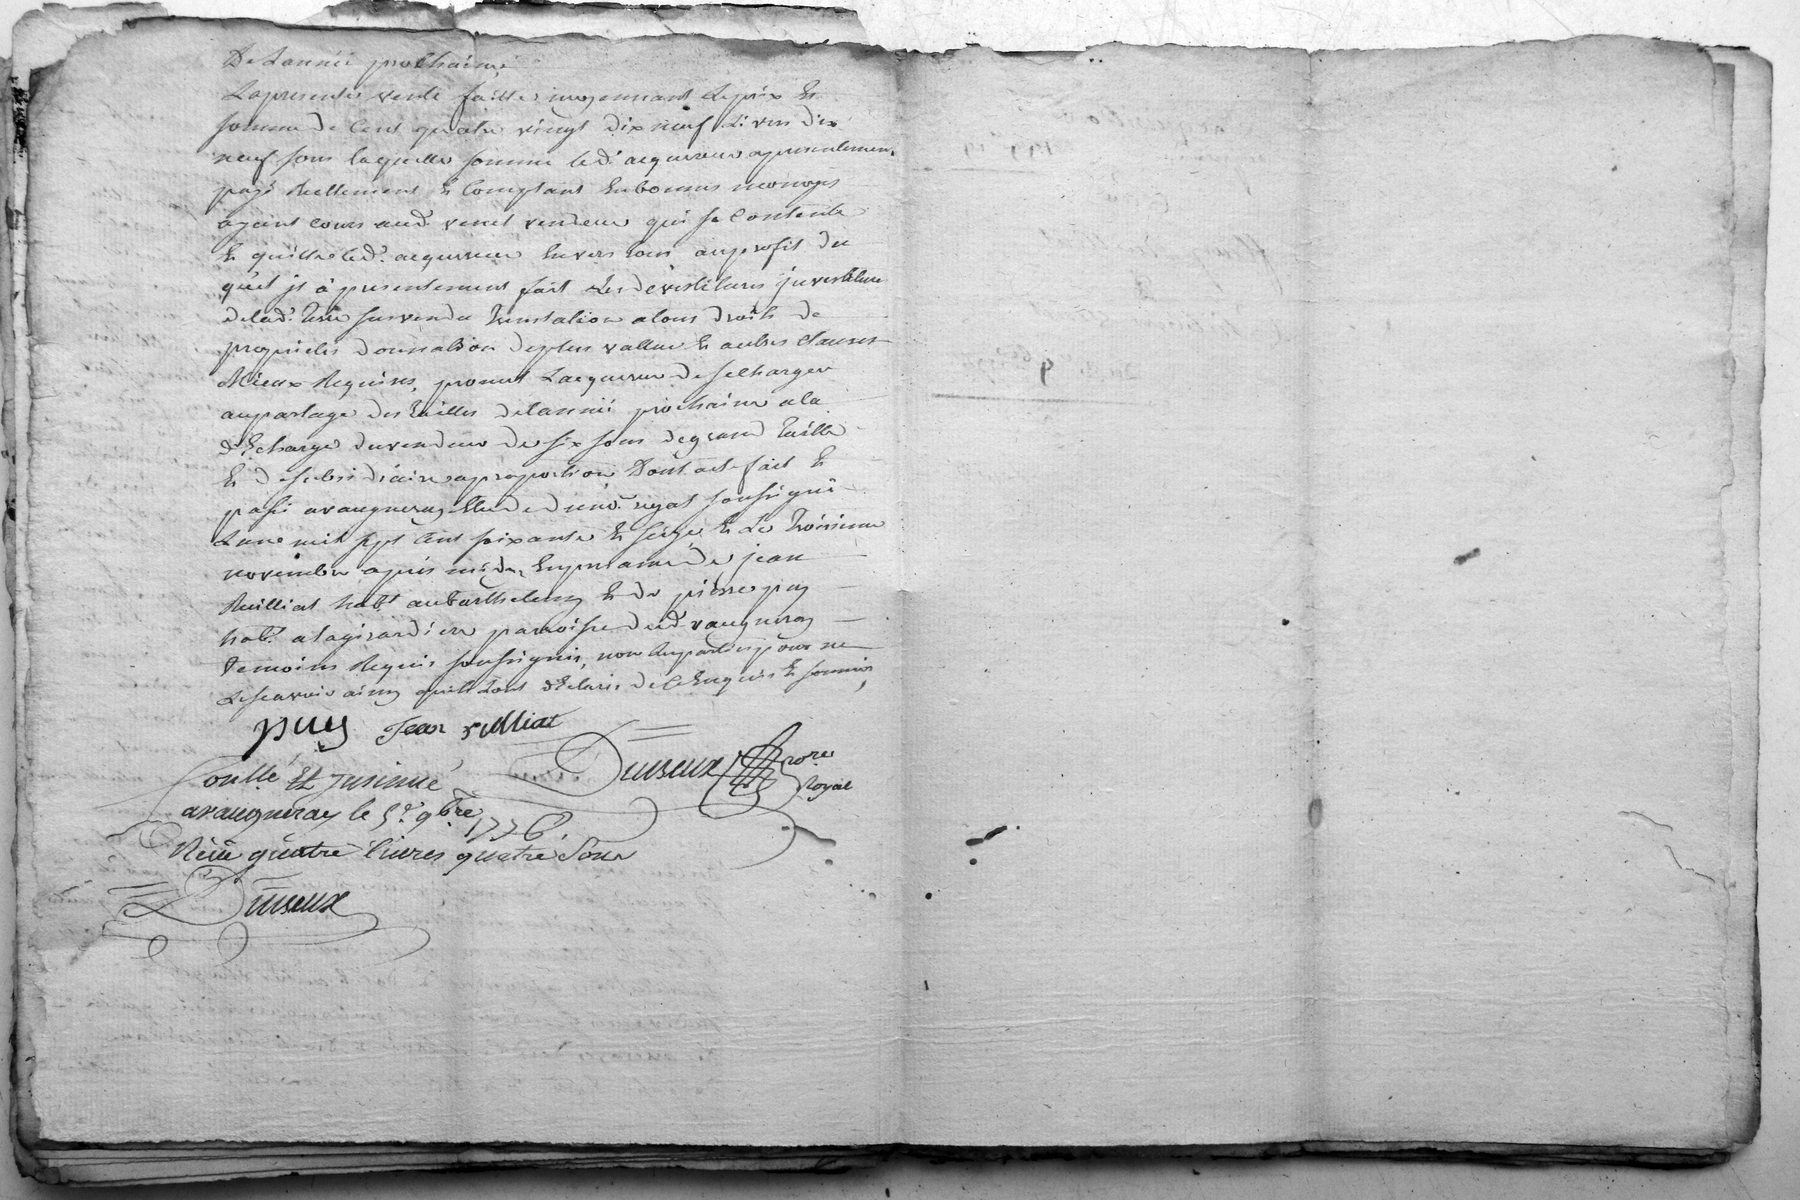 De Lannéé prochaine
La presente vente faitte moyennant le prix Et
somme de Cent quatre vingt dix neuf Livres dix
neuf sous laquelle somme led. acquereur a presentement
payé Reellement Et Comptant En bonnes monoyes
ayant cours aud. venet vendeur qui se Contente
Et quitte led. acquereur Envers tous au profit du
quel jl à presentement fait Les devestitures jnvestiture
de lad. Terre sus vendue Translation a tous droits de
proprietés donnation de plus vallue Et autres Clauses
Mieux Requises, promet Lacquereur de se Charger
au partage des tailles de lannéé prochaine a la
déCharge du vendeur de six sous de grand taille
Et de subsidiaire a proportion Dont acte fait Et
passé a vaugneray Etude de soussigné
Lan mil sept Cent soixante Et seize Et Le Troisieme
novembre après midy, En presence de jean
Reilliat habt. au Barthelemy Et de pierre puy
habt. a la girardiere parroisse dud. vaugneray
temoins Requis soussignés, non les parties pour ne
Le scavoir ainsy quils Lont déClaré de ce Enquis Et sommés,
puy Jean relliat
Duiseux No.re
Royal
Con.llé Et Jnsinué
a vaugneray le 5.e 9bre 1776
Reçu quatre livres quatre Sous
Duiseux